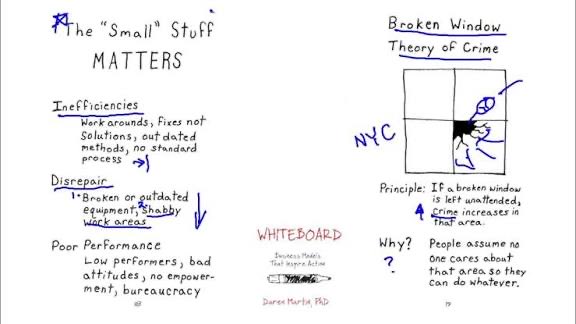 The "Small" Stuff
MATTERS
Inefficiencies
Workarounds, fixes not
solutions, outdated
methods, no standard
process
Disrepair
1. Broken or outdated
equipment, 2. shabby
work areas
Poor Performance
Low performers, bad
attitudes, no empower-
ment, bureaucracy
WHITEBOARD
Business Models
That Inspire Action
Daren Martin, PhD
Broken Window
Theory of Crime
NYC
Principle: If a broken window
is left unattended,
crime increases in
that area.
Why? People assume no
? one cares about
that area so they
can do whatever.